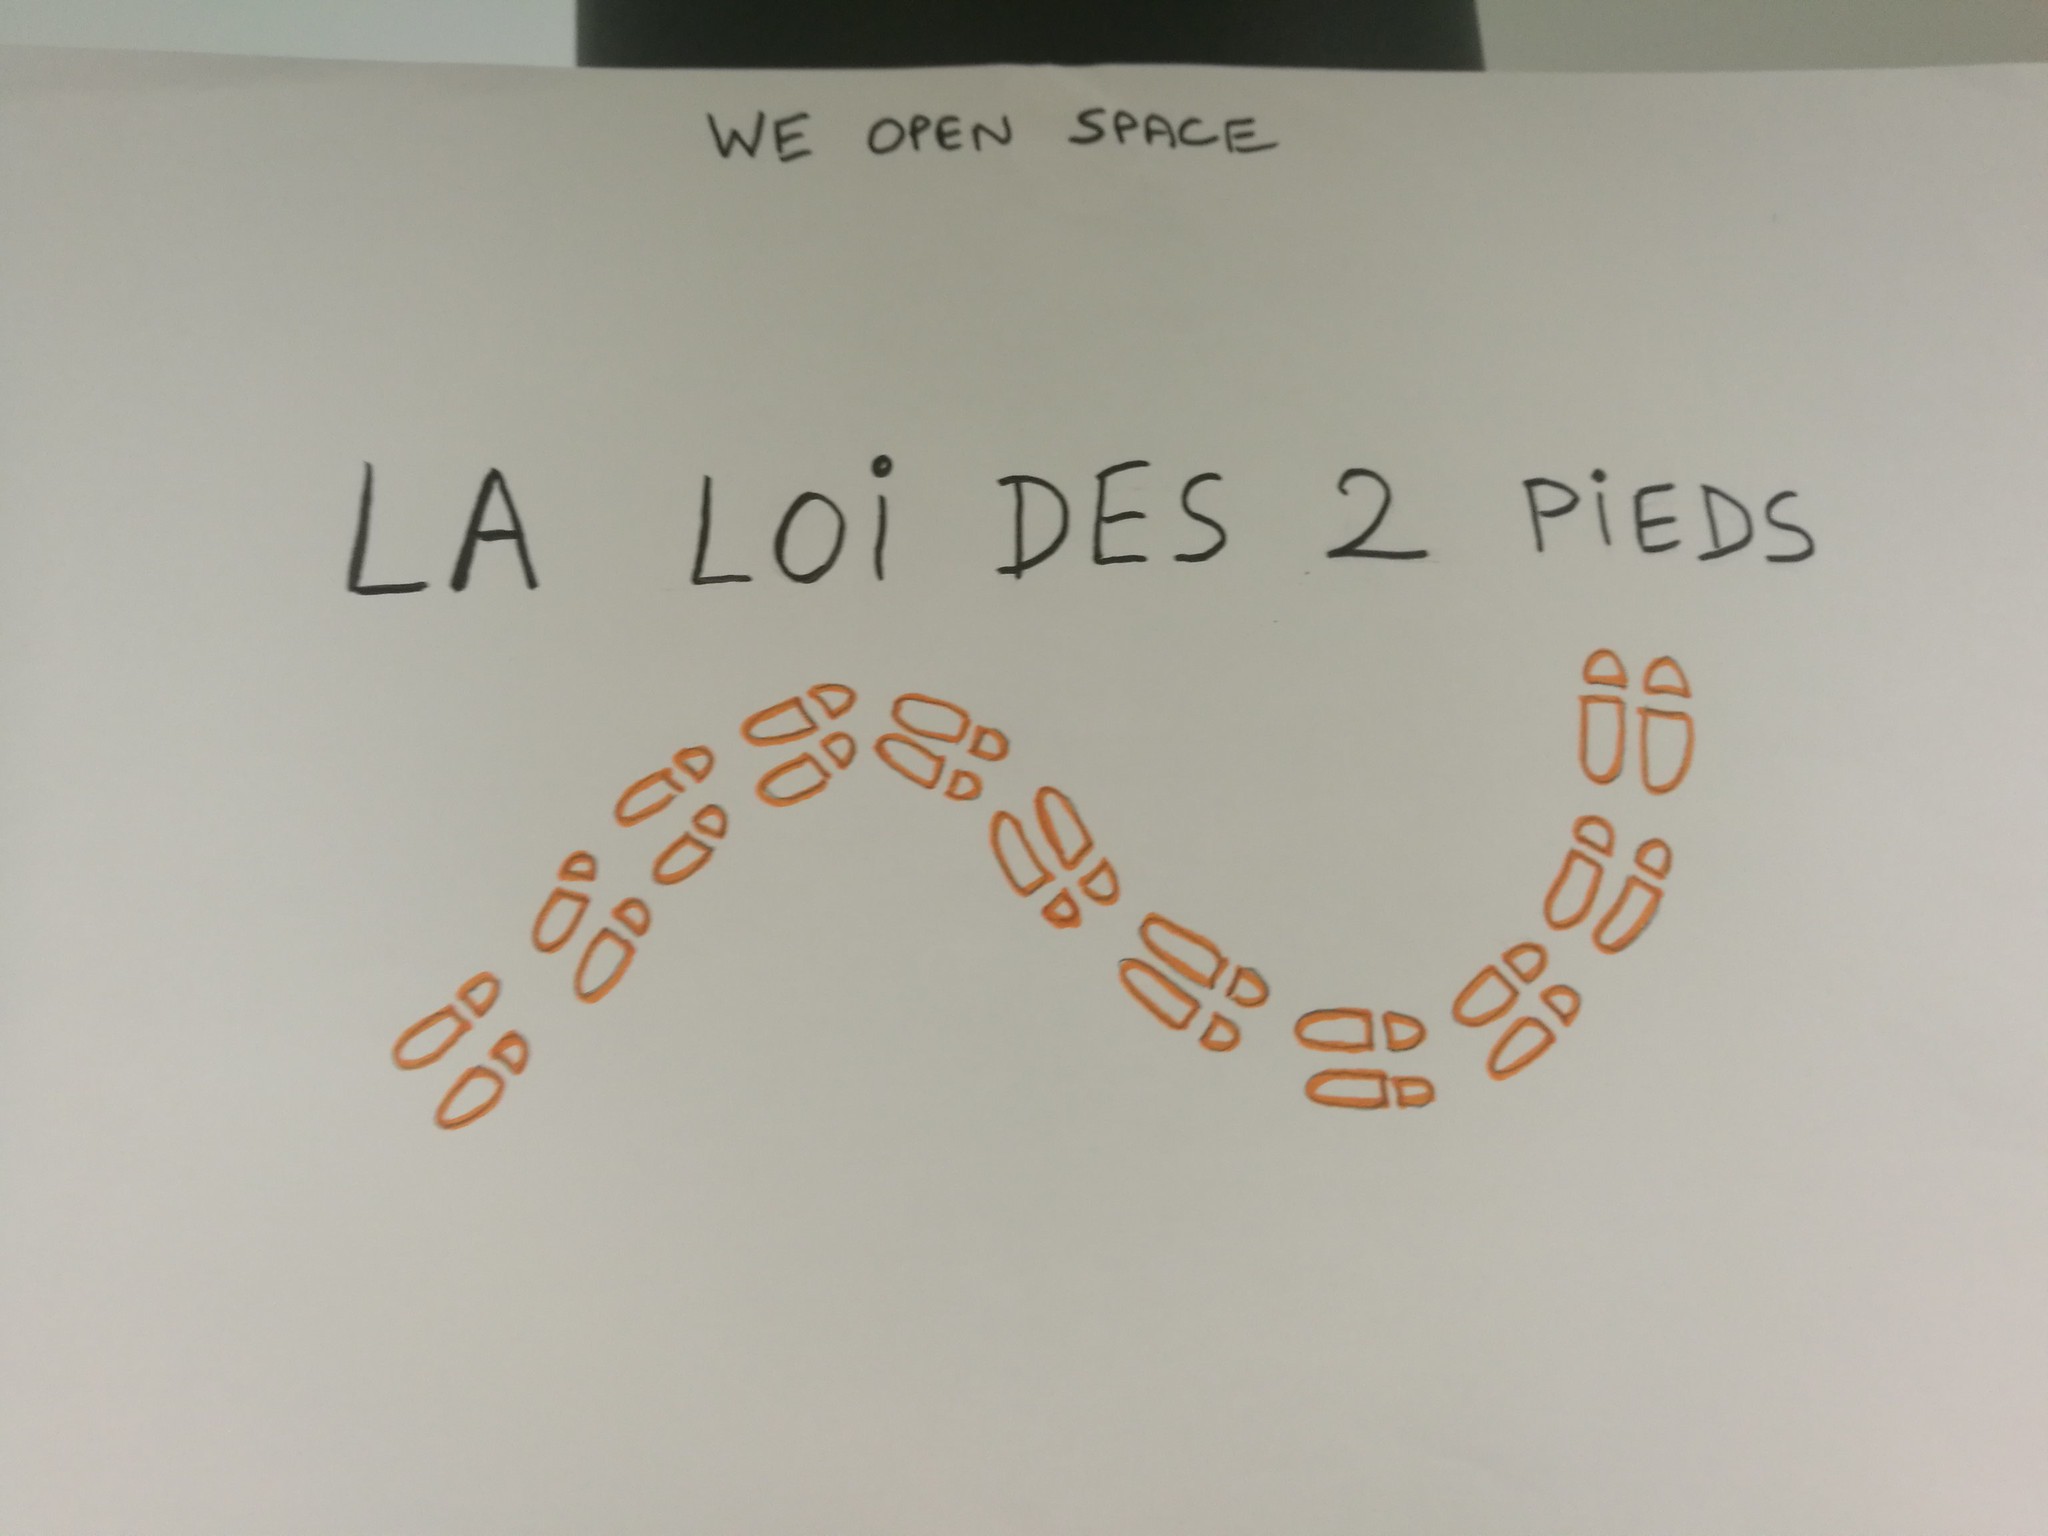 WE OPEN SPACE
LA LOi DES 2 PiEDS